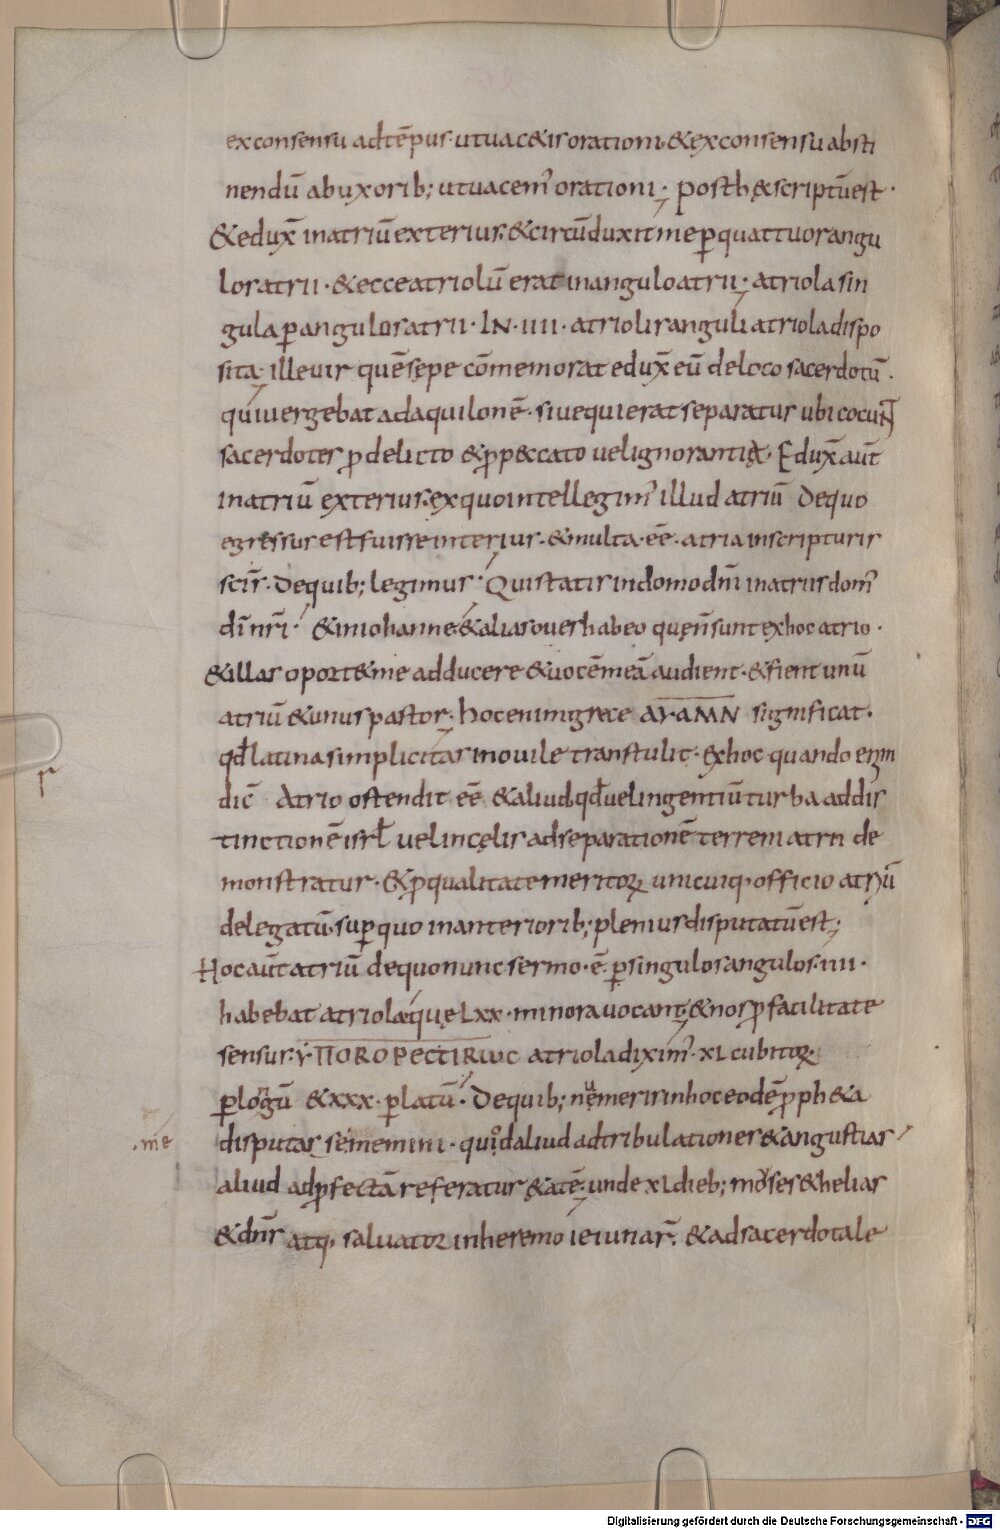 ex consensu ad tēpus · ut uac&is orationi · & ex consensu absti
nendū ab uxorib; ut uacem' orationi · post h&scriptūest ·
& edux̄ in atriū exterius · & circūduxit me p quattuor angu
los atrii · & ecce atriolū erat in angulo atrii · atriola sin
gula p angulos atrii · IN · IIII · atrioli anguli atriola dispo
sita · ille uir quē sępe cōmemorat edux̄ eū de loco sacerdotū ·
qui uergebat ad aquilonē · siue qui erat separatus ubi cocuN̄T
sacerdotes p delicto & p pęccato uel ignorantię · Edux̄ aūt
in atriū exterius · ex quo intellegim' illud atriū de quo
egressus est fuisse interius · & multa · eē · atria in scripturis
scīs · De quib; legimus · Qui statis in domo dn̄i in atriis dom'
dī nr̄i · & in iohanne · & alias oues habeo quę n̄ sunt ex hoc atrio ·
& illas oport& me adducere & uocē meā audient · & fient unū
atriū & unus pastor · hoc enim grece AYAMN significat ·
qđ latina simplicitas in ouile transtulit · ex hoc quando eni̅m
dic̄ Atrio ostendit eē & aliud qđ uel in gentiū turba ad dis
tinctionē isrł uel in cęlis ad separationē terreni atrii de
monstratur · & p qualitate meritoꝝ unicuiq· officio atriū
delegatū · sup quo in anteriorib; plenius disputatū est ;
Hoc aūt atriū de quo nunc sermo · ē · p singulos angulos · IIII ·
habebat atriola quę Lxx · minora uocant · & nos p facilitate
sensus · Ỳ ΠOROPECTIRωC atriola dixim' · xL cubitoꝝ ·
p longū & xxx · p latū · De quib; numeris in hoc eodē proph&a
.me
disputasse memini · quod aliud ad tribulationes & angustias
aliud ad pfectā referatur &atē · unde xL dieb; moyses & helias
& dn̄s atq· saluator in heremo ieiunar̄ · & ad sacerdotale
Digitalisierung gefördert durch die Deutsche Forschungsgemeinschaft - DFG